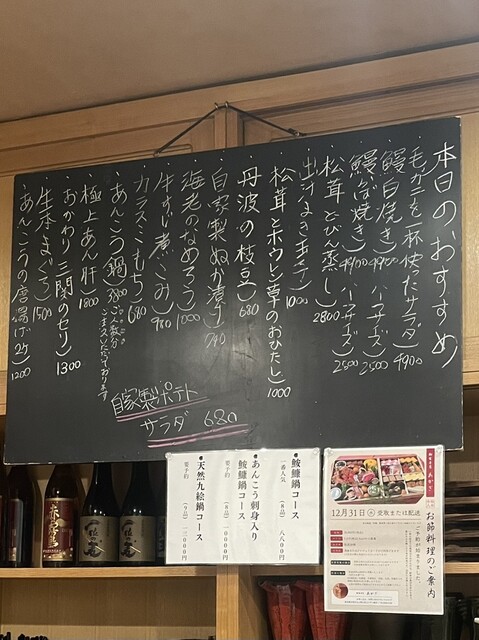 本日のおすすめ
毛ガニを一杯使ったサラダ 4900
鰻白焼き 4900 ハーフサイズ 2500
鰻かば焼き 4900 ハーフサイズ 2500
松茸とびん蒸し 2800
出汁まき玉子 1000
松茸とホウレン草のおひたし 1000
丹波の枝豆 680
自家製ぬか漬け 740
海老のなめろう 1000
牛すじ煮こみ 980
カラスミもち 680
あんこう鍋 3800 二人前分
極上あん肝 1800
おかわり三関のセリ 1300
生本まぐろ 1500
あんこうの唐揚げ 2ケ 1200
自家製ポテト
サラダ 680
鮟鱇鍋コース
一番人気 (8品) 八八〇〇円
あんこう刺身入り
鮟鱇鍋コース
要予約 (8品) 一〇〇〇〇円
天然九絵鍋コース
要予約 (9品) 一三〇〇〇円
12月31日(火)受取または配送
お節料理のご案内
ご予約が始まりました。